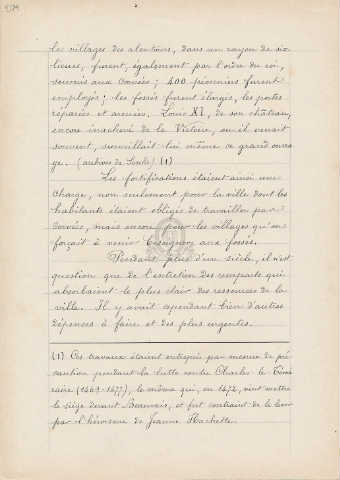 les villages des alentours, dans un rayon de six
lieues, furent, également par l'ordre du roi,
soumis aux corvées ; 400 pionniers furent
employés ; les fossés furent élargis, les portes
réparées et armées. Louis XI, de son château,
encore inachevé de la Victoire, où il venait
souvent, surveillait lui même ce grand ouvra
ge. (archives de Senlis) (1)
Les fortifications étaient ainsi une
charge, non seulement pour la ville dont les
habitants étaient obligés de travailler par
corvées, mais encore pour les villages qu'on
forçait à venir besogner aux fossés.
Pendant plus d'un siècle, il n'est
question que de l'entretien des remparts qui
absorbaient le plus clair des ressources de la
ville. Il y avait cependant bien d'autres
dépenses à faire et des plus urgentes.
(1) Ces travaux étaient entrepris par mesure de pré
caution pendant la lutte contre Charles le Témé
raire (1469-1477), le même qui, en 1472, vint mettre
le siège devant Beauvais, et fut contraint de le lever
par l'héroïsme de Jeanne Hachette.